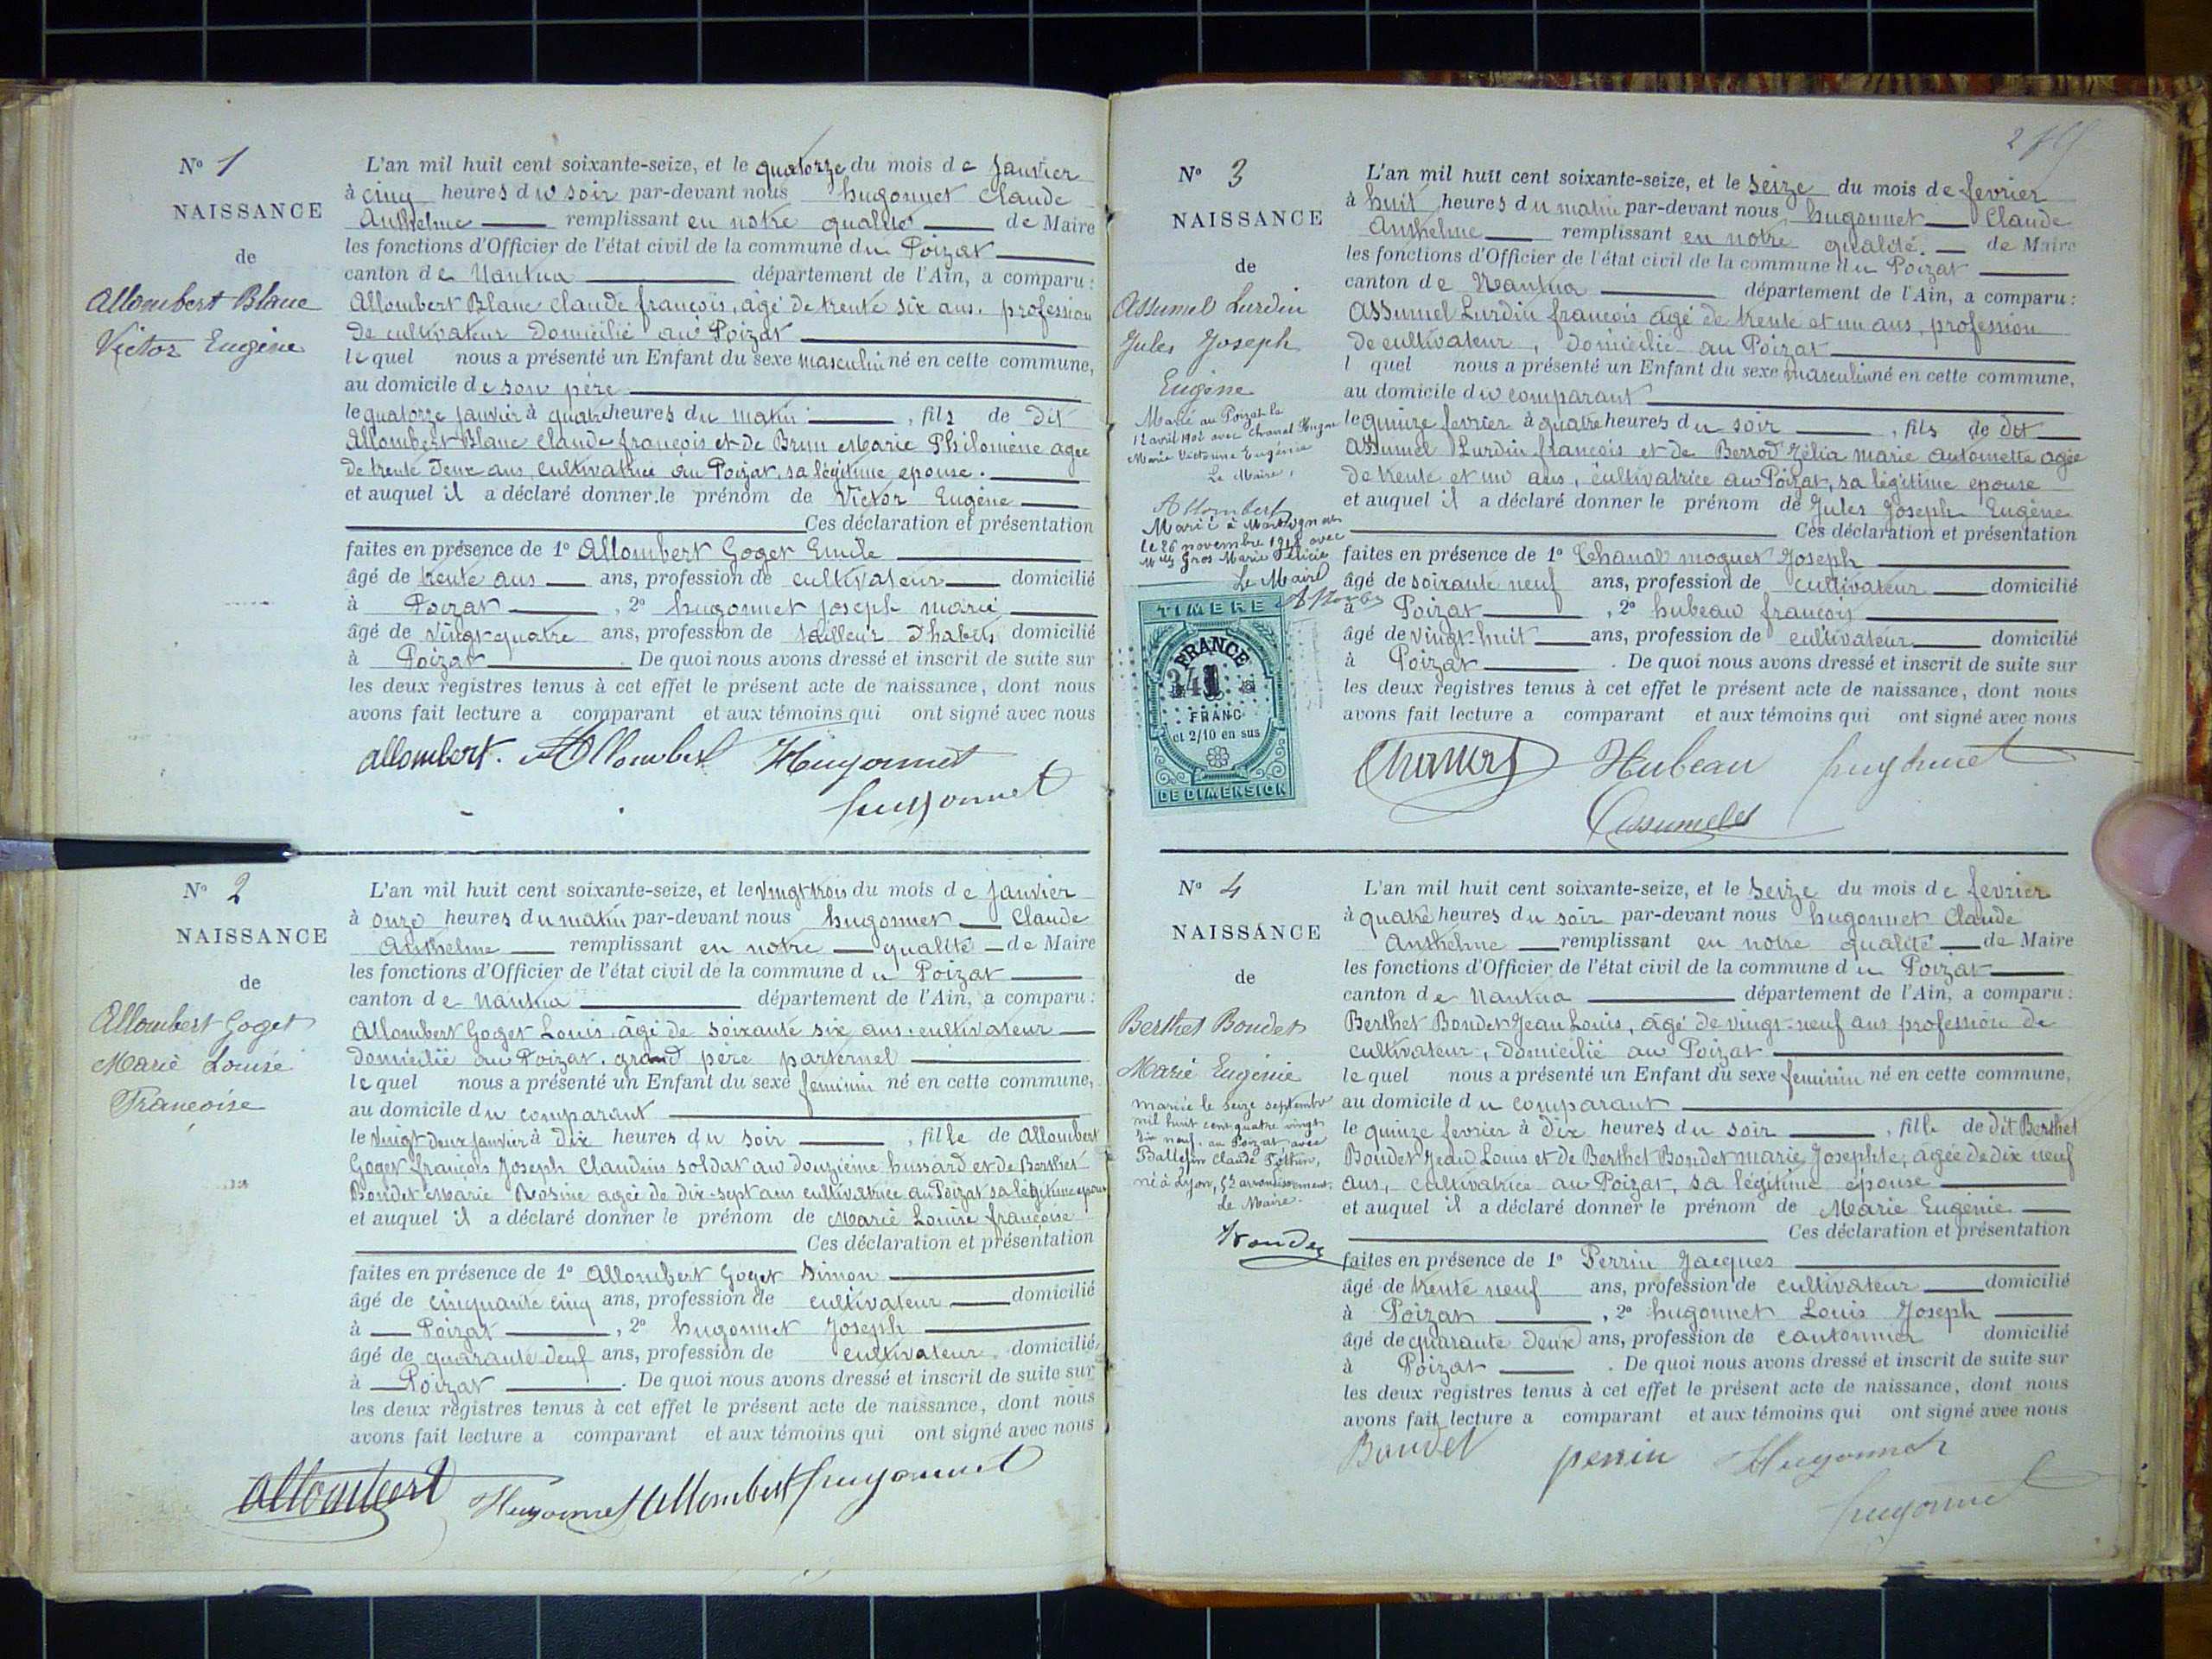 N° 1
NAISSANCE
de
Allombert Blanc
Victor Eugène
L'an mil huit cent soixante-seize, et le quatorze du mois de Janvier
à cinq heures du soir par-devant nous hugonnet Claude
Anthelme remplissant en notre qualité de Maire
les fonctions d'Officier de l'état civil de la commune du Poizat
canton de Nantua département de l'Ain, a comparu :
Allombert Blanc Claude françois, âgé de trente six ans. profession
de cultivateur domicilié au Poizat
lequel nous a présenté un Enfant du sexe masculin né en cette commune,
au domicile de son père
le quatorze Janvier à quatre heures du matin , fils de dit
Allombert Blanc Claude françois et de Brun Marie Philomène agée
de trente deux ans cultivatrice au Poizat, sa légitime epouse.
et auquel il a déclaré donner le prénom de Victor Eugène
Ces déclaration et présentation
faites en présence de 1° Allombert Goget Emile
âgé de trente ans ans, profession de cultivateur domicilié
à Poizat , 2° hugonnet joseph marie
âgé de vingt-quatre ans, profession de tailleur d'habits domicilié
à Poizat . De quoi nous avons dressé et inscrit de suite sur
les deux registres tenus à cet effet le présent acte de naissance, dont nous
avons fait lecture a comparant et aux témoins qui ont signé avec nous
allombert. Allombert Hugonnet
hugonnet
N° 2
NAISSANCE
de
Allombert Goget
Marie Louise
Françoise
L'an mil huit cent soixante-seize, et le vingt trois du mois de Janvier
à onze heures du matin par-devant nous hugonnet Claude
Anthelme remplissant en notre qualité de Maire
les fonctions d'Officier de l'état civil de la commune du Poizat
canton de Nantua département de l'Ain, a comparu :
Allombert Goget Louis âgé de soixante six ans. cultivateur
domicilié au Poizat. grand père parternel
lequel nous a présenté un Enfant du sexe feminin né en cette commune,
au domicile du comparant
le vingt deux Janvier à dix heures du soir , fille de Allombert
Goget françois Joseph Claudius soldat au douzième hussard et de Berthet
Bondet Marie Rosine agée de dix-sept ans cultivatrice au Poizat sa légitime epouse
et auquel il a déclaré donner le prénom de Marie Louise françoise
Ces déclaration et présentation
faites en présence de 1° Allombert Goget Simon
âgé de cinquante cinq ans, profession de cultivateur domicilié
à Poizat , 2° hugonnet Joseph
âgé de quarante ans, profession de cultivateur domicilié
à Poizat . De quoi nous avons dressé et inscrit de suite sur
les deux registres tenus à cet effet le présent acte de naissance, dont nous
avons fait lecture a comparant et aux témoins qui ont signé avec nous
Allombert Hugonnet Allombert hugonnet
N° 3
NAISSANCE
de
Assumel Lurdin
Jules Joseph
Eugène
Marié au Poizat le
12 avril 1902 avec Chanal
Marie Victorine Eugénie
Le Maire,
Allombert
Marié à Martignat
le 26 novembre avec
Mlle Gros Marie Félicie
Le Maire
TIMBRE
FRANCE
1
FRANC
et 2/10 en sus
DE DIMENSION
L'an mil huit cent soixante-seize, et le seize du mois de fevrier
à huit heures du matin par-devant nous hugonnet Claude
Anthelme remplissant en notre qualité. de Maire
les fonctions d'Officier de l'état civil de la commune du Poizat
canton de Nantua département de l'Ain, a comparu :
Assumel Lurdin françois âgé de trente et un ans, profession
de cultivateur, domicilié au Poizat
l quel nous a présenté un Enfant du sexe masculin né en cette commune,
au domicile du comparant
le quinze fevrier à quatre heures du soir , fils de dit
Assumel Lurdin françois et de Berrod Zélia marie antoinette agée
de trente et un ans, cultivatrice au Poizat, sa légitime epouse
et auquel il a déclaré donner le prénom de Jules Joseph Eugène
Ces déclaration et présentation
faites en présence de 1° Chanal moguet Joseph
âgé de soixante neuf ans, profession de cultivateur domicilié
à Poizat , 2° hubeau françois
âgé de vingt-huit ans, profession de cultivateur domicilié
à Poizat . De quoi nous avons dressé et inscrit de suite sur
les deux registres tenus à cet effet le présent acte de naissance, dont nous
avons fait lecture a comparant et aux témoins qui ont signé avec nous
Hubeau hugonnet
Assumel
N° 4
NAISSANCE
de
Berthet Bondet
Marie Eugénie
mariée le seize septembre
mil huit cent quatre vingt
dix neuf. au Poizat avec
Claude
né à Lyon, 5e arrondissement.
Le Maire.
L'an mil huit cent soixante-seize, et le seize du mois de fevrier
à quatre heures du soir par-devant nous hugonnet Claude
Anthelme remplissant en notre qualité de Maire
les fonctions d'Officier de l'état civil de la commune du Poizat
canton de Nantua département de l'Ain, a comparu :
Berthet Bondet Jean Louis, âgé de vingt-neuf ans profession de
cultivateur, domicilié au Poizat
lequel nous a présenté un Enfant du sexe feminin né en cette commune,
au domicile du comparant
le quinze fevrier à dix heures du soir , fille de dit Berthet
Bondet Jean Louis et de Berthet Bondet marie Josephte, agée de dix neuf
ans, cultivatrice au Poizat, sa légitime épouse
et auquel il a déclaré donner le prénom de Marie Eugénie
Ces déclaration et présentation
faites en présence de 1° Perrin Jacques
âgé de trente neuf ans, profession de cultivateur domicilié
à Poizat , 2° hugonnet Louis Joseph
âgé de quarante deux ans, profession de cantonnier domicilié
à Poizat . De quoi nous avons dressé et inscrit de suite sur
les deux registres tenus à cet effet le présent acte de naissance, dont nous
avons fait lecture a comparant et aux témoins qui ont signé avec nous
Bondet perrin Hugonnet
hugonnet